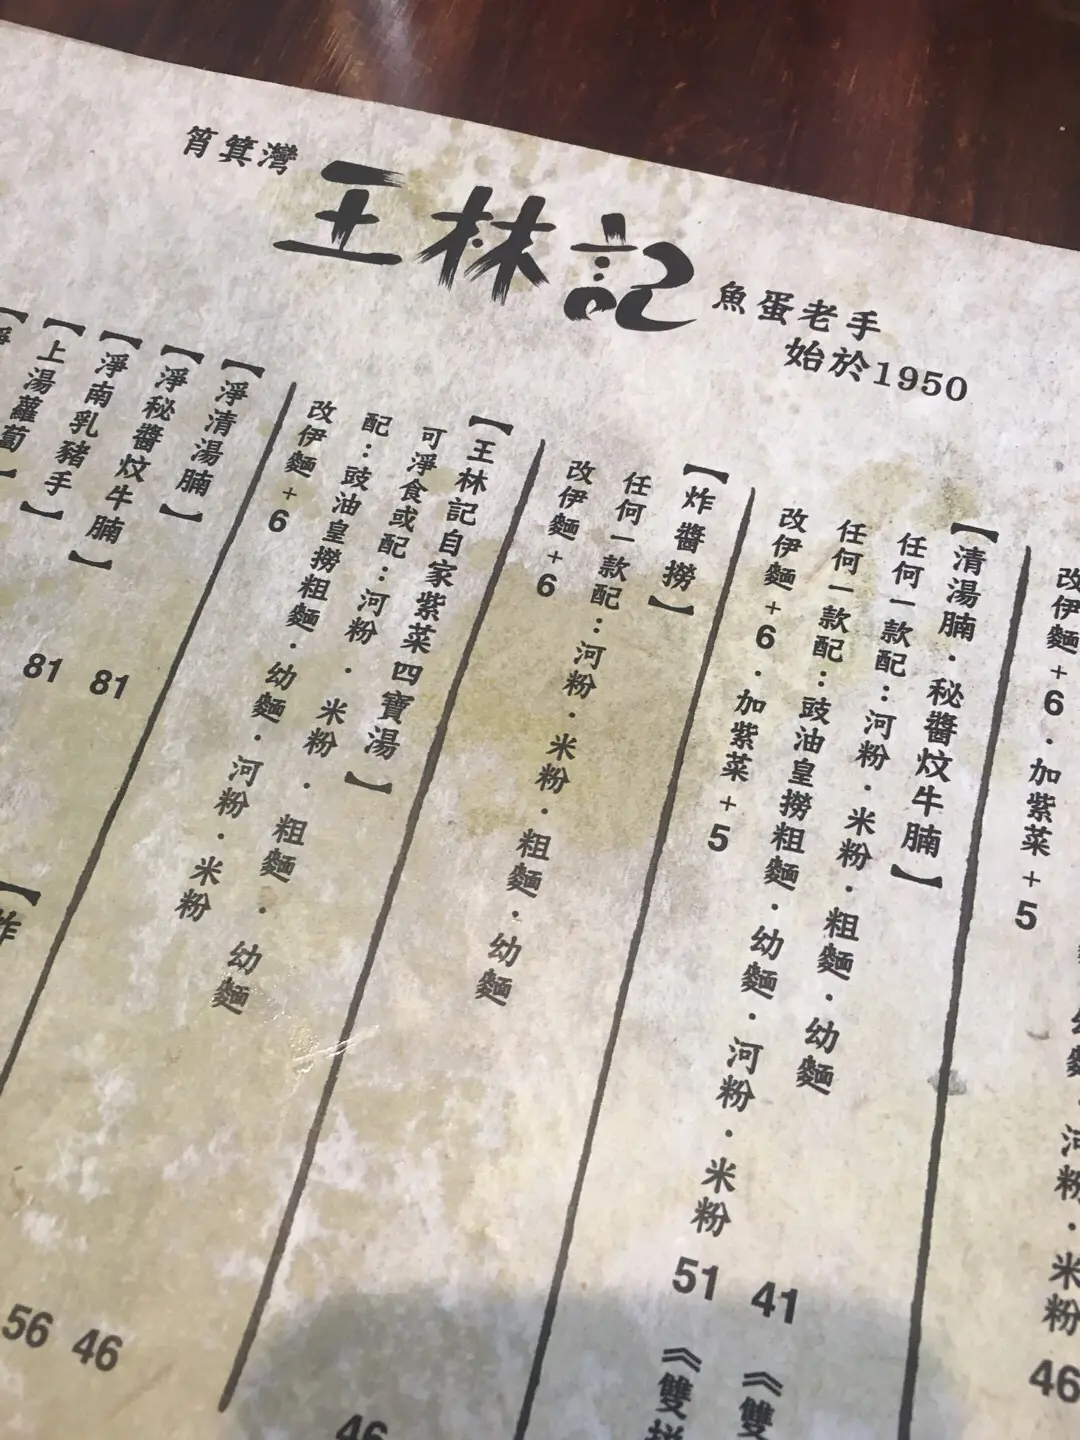 筲箕灣
王林記
魚蛋老手
始於1950
改伊麵+6．加紫菜+5
河粉．米粉
46
【清湯腩．秘醬炆牛腩】
任何一款配：河粉．米粉．粗麵．幼麵
41
《雙
任何一款配：豉油皇撈粗麵．幼麵．河粉．米粉
51
《雙
改伊麵+6．加紫菜+5
【炸醬撈】
任何一款配：河粉．米粉．粗麵．幼麵
改伊麵+6
【王林記自家紫菜四寶湯】
可淨食或配：河粉．米粉．粗麵．幼麵
46
配：豉油皇撈粗麵．幼麵．河粉．米粉
改伊麵+6
【淨清湯腩】
46
【淨秘醬炆牛腩】
56
【淨南乳豬手】
81
【上湯蘿蔔】
81